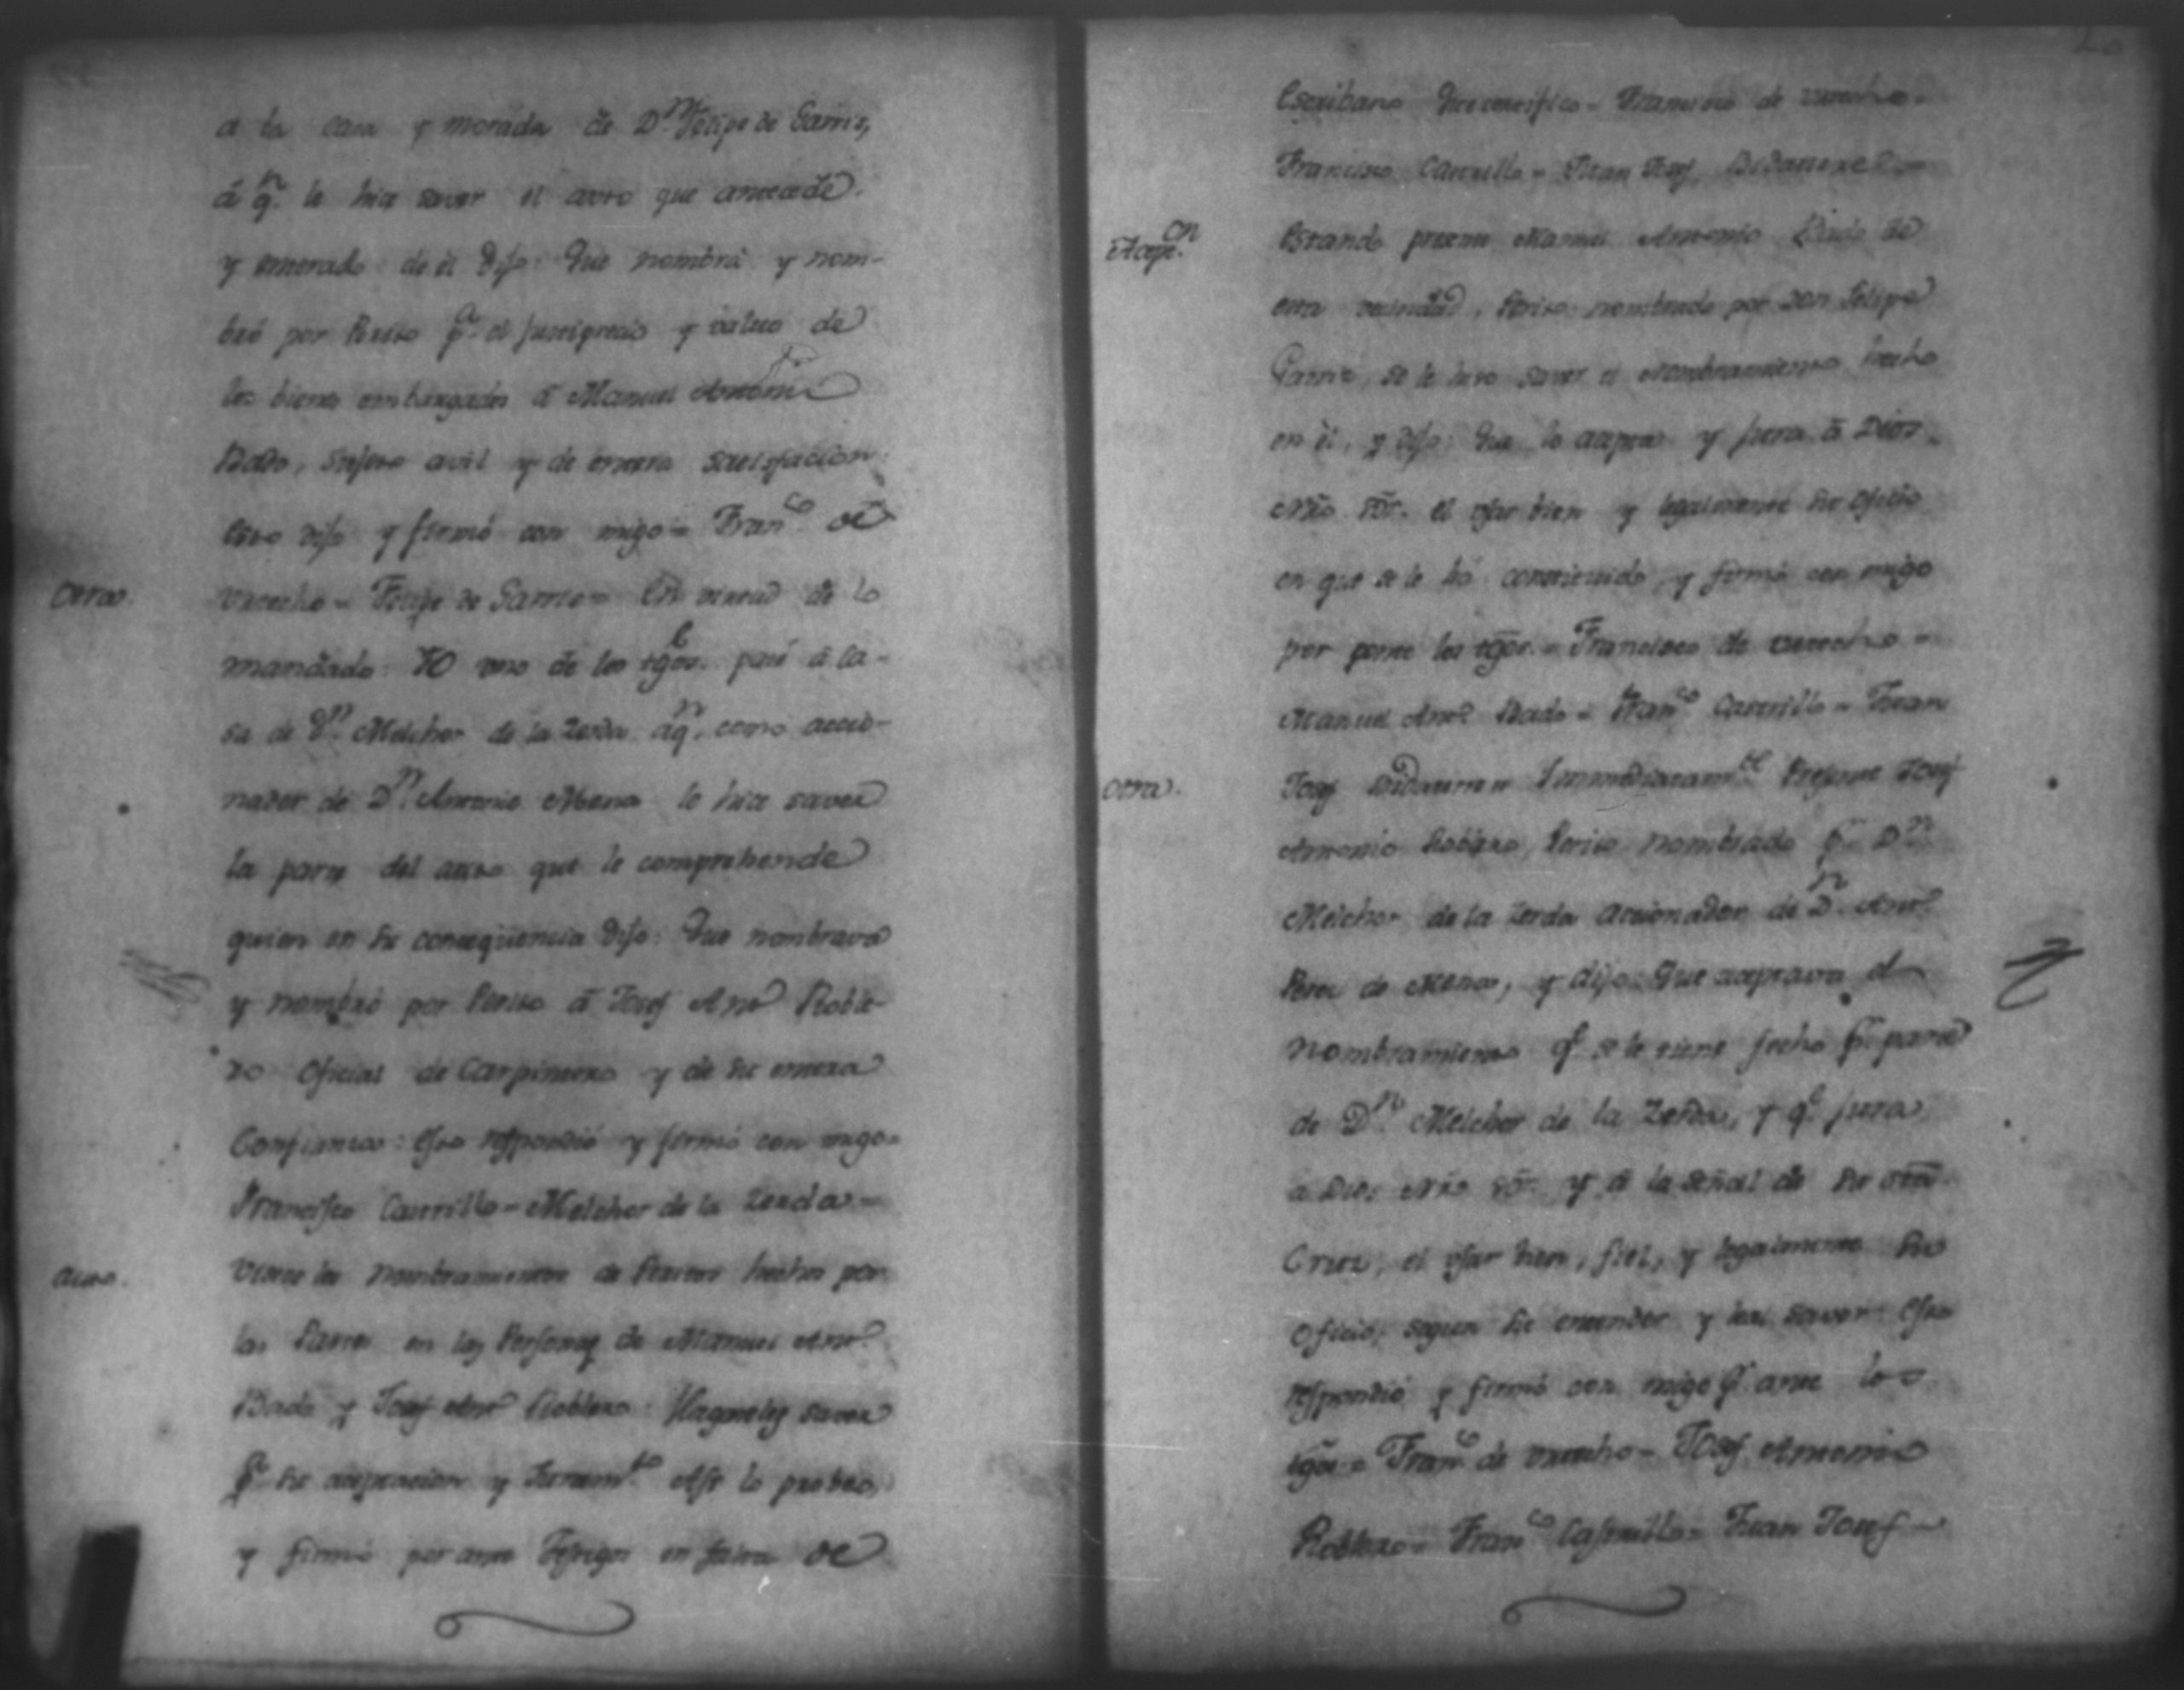 a la casa y morada de D.n Felipe de Garris,
á q.n le hice saver el auto que antecede
y enterado de él dijo: Que nombrá y nom-
bró por Perito p.a el justiprecio y valuo de
los bienes embargados á Manuel Antonio
Dado, sujeto avil y de entera satisfacion
esto dijo y firmó con migo = Fran.co de
Otra. Urrecho = Felipe de Garris = En virtud de lo
mandado Yo uno de los tgōs. pasé á la ca-
sa de D.n Melchor de la Zerda á q.n como accio-
nador de D.n Antonio Mena le hice saver
la parte del auto que le comprehende
quien en su consequencia dijo: Que nombrava
y nombró por Perito á Josef Ant.o Roble-
ro Oficial de Carpintero y de su entera
Confianza: esto respondió y firmó con migo =
Francisco Castrillo = Melchor de la Zerda =
Auto. Vistos los nombramientos de Peritos hechos por
las Partes en las Personas de Manuel Ant.o
Dado y Josef Ant.o Roblero: Hagaseles saver
p.a su aceptacion y Juram.to Asi lo proveo,
y firmó por ante Testigos en falta de
20
Escribano Que certifico = Francisco de Urrecho =
Francisco Castrillo = Juan Josef
Acep.on Estando presente Manuel Antonio Dado de
esta vecindad, Perito nombrado por Don Felipe
Garris, se le hizo saver el nombramiento hecho
en él, y dijo: Que lo acepta y jura á Dios
Nr̄o Sōr. el usar bien y legalmente su oficio
en que se le há constituido, y firmó con migo
por ante los tgōs. = Francisco de Urrecho =
Manuel Ant.o Dado = Fran.co Castrillo = Juan
Otra. Josef Immediatam.te Presente Josef
Antonio Roblero, Perito nombrado p.r D.n
Melchor de la Zerda accionador de D.n Ant.o
Perez de Mena, y dijo: Que aceptava el
nombramiento q.e se le tiene fecho p.r parte
de D.n Melchor de la Zerda, y q.e jura
a Dios Nr̄o Sōr. y á la señal de su
Cruz, el usar bien, fiel, y legalmente su
oficio, segun su entender y leal saver: esto
respondió y firmó con migo p.r ante los
tgōs. = Fran.co de Urrecho = Josef Antonio
Roblero = Fran.co Castrillo = Juan Josef =